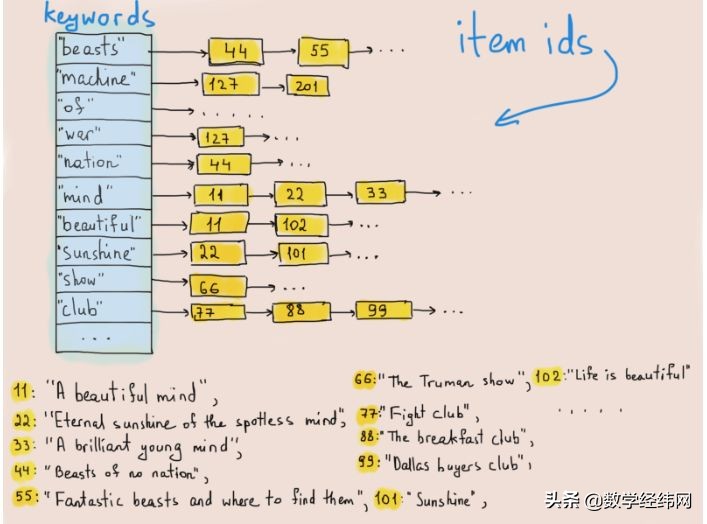 keywords
item ids
"beasts" 44 55 ...
"machine" 127 201
"of" .....
"war" 127 ...
"nation" 44 ...
"mind" 11 22 33 ...
"beautiful" 11 102 ...
"sunshine" 22 101 ...
"show" 66 ...
"club" 77 88 99 ...
...
11: "A beautiful mind",
22: "Eternal sunshine of the spotless mind",
33: "A brilliant young mind",
44: "Beasts of no nation",
55: "Fantastic beasts and where to find them", 101: "Sunshine",
66: "The Truman show", 102: "Life is beautiful"
77: "Fight club", .....
88: "The breakfast club",
99: "Dallas buyers club",
头条 @数学经纬网